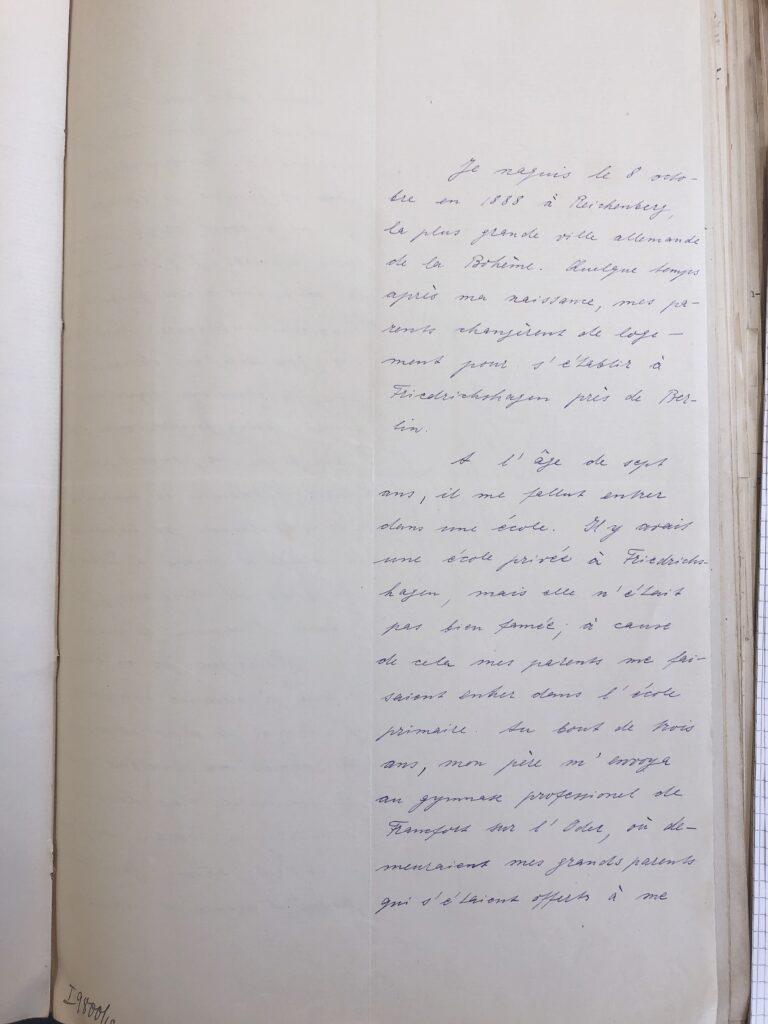 Je naquis le 8 octo-
bre en 1888 à Reichenberg,
la plus grande ville allemande
de la Bohême. Quelque temps
après ma naissance, mes pa-
rents changèrent de loge-
ment pour s'établir à
Friedrichshagen près de Ber-
lin.
A l'âge de sept
ans, il me fallut entrer
dans une école. Il y avait
une école privée à Friedrichs-
hagen, mais elle n'était
pas bien famée; à cause
de cela mes parents me fai-
saient entrer dans l'école
primaire. Au bout de trois
ans, mon père m'envoya
au gymnase professionel de
Francfort sur l'Oder, où de-
meuraient mes grands parents
qui s'étaient offerts à me
I9800/18